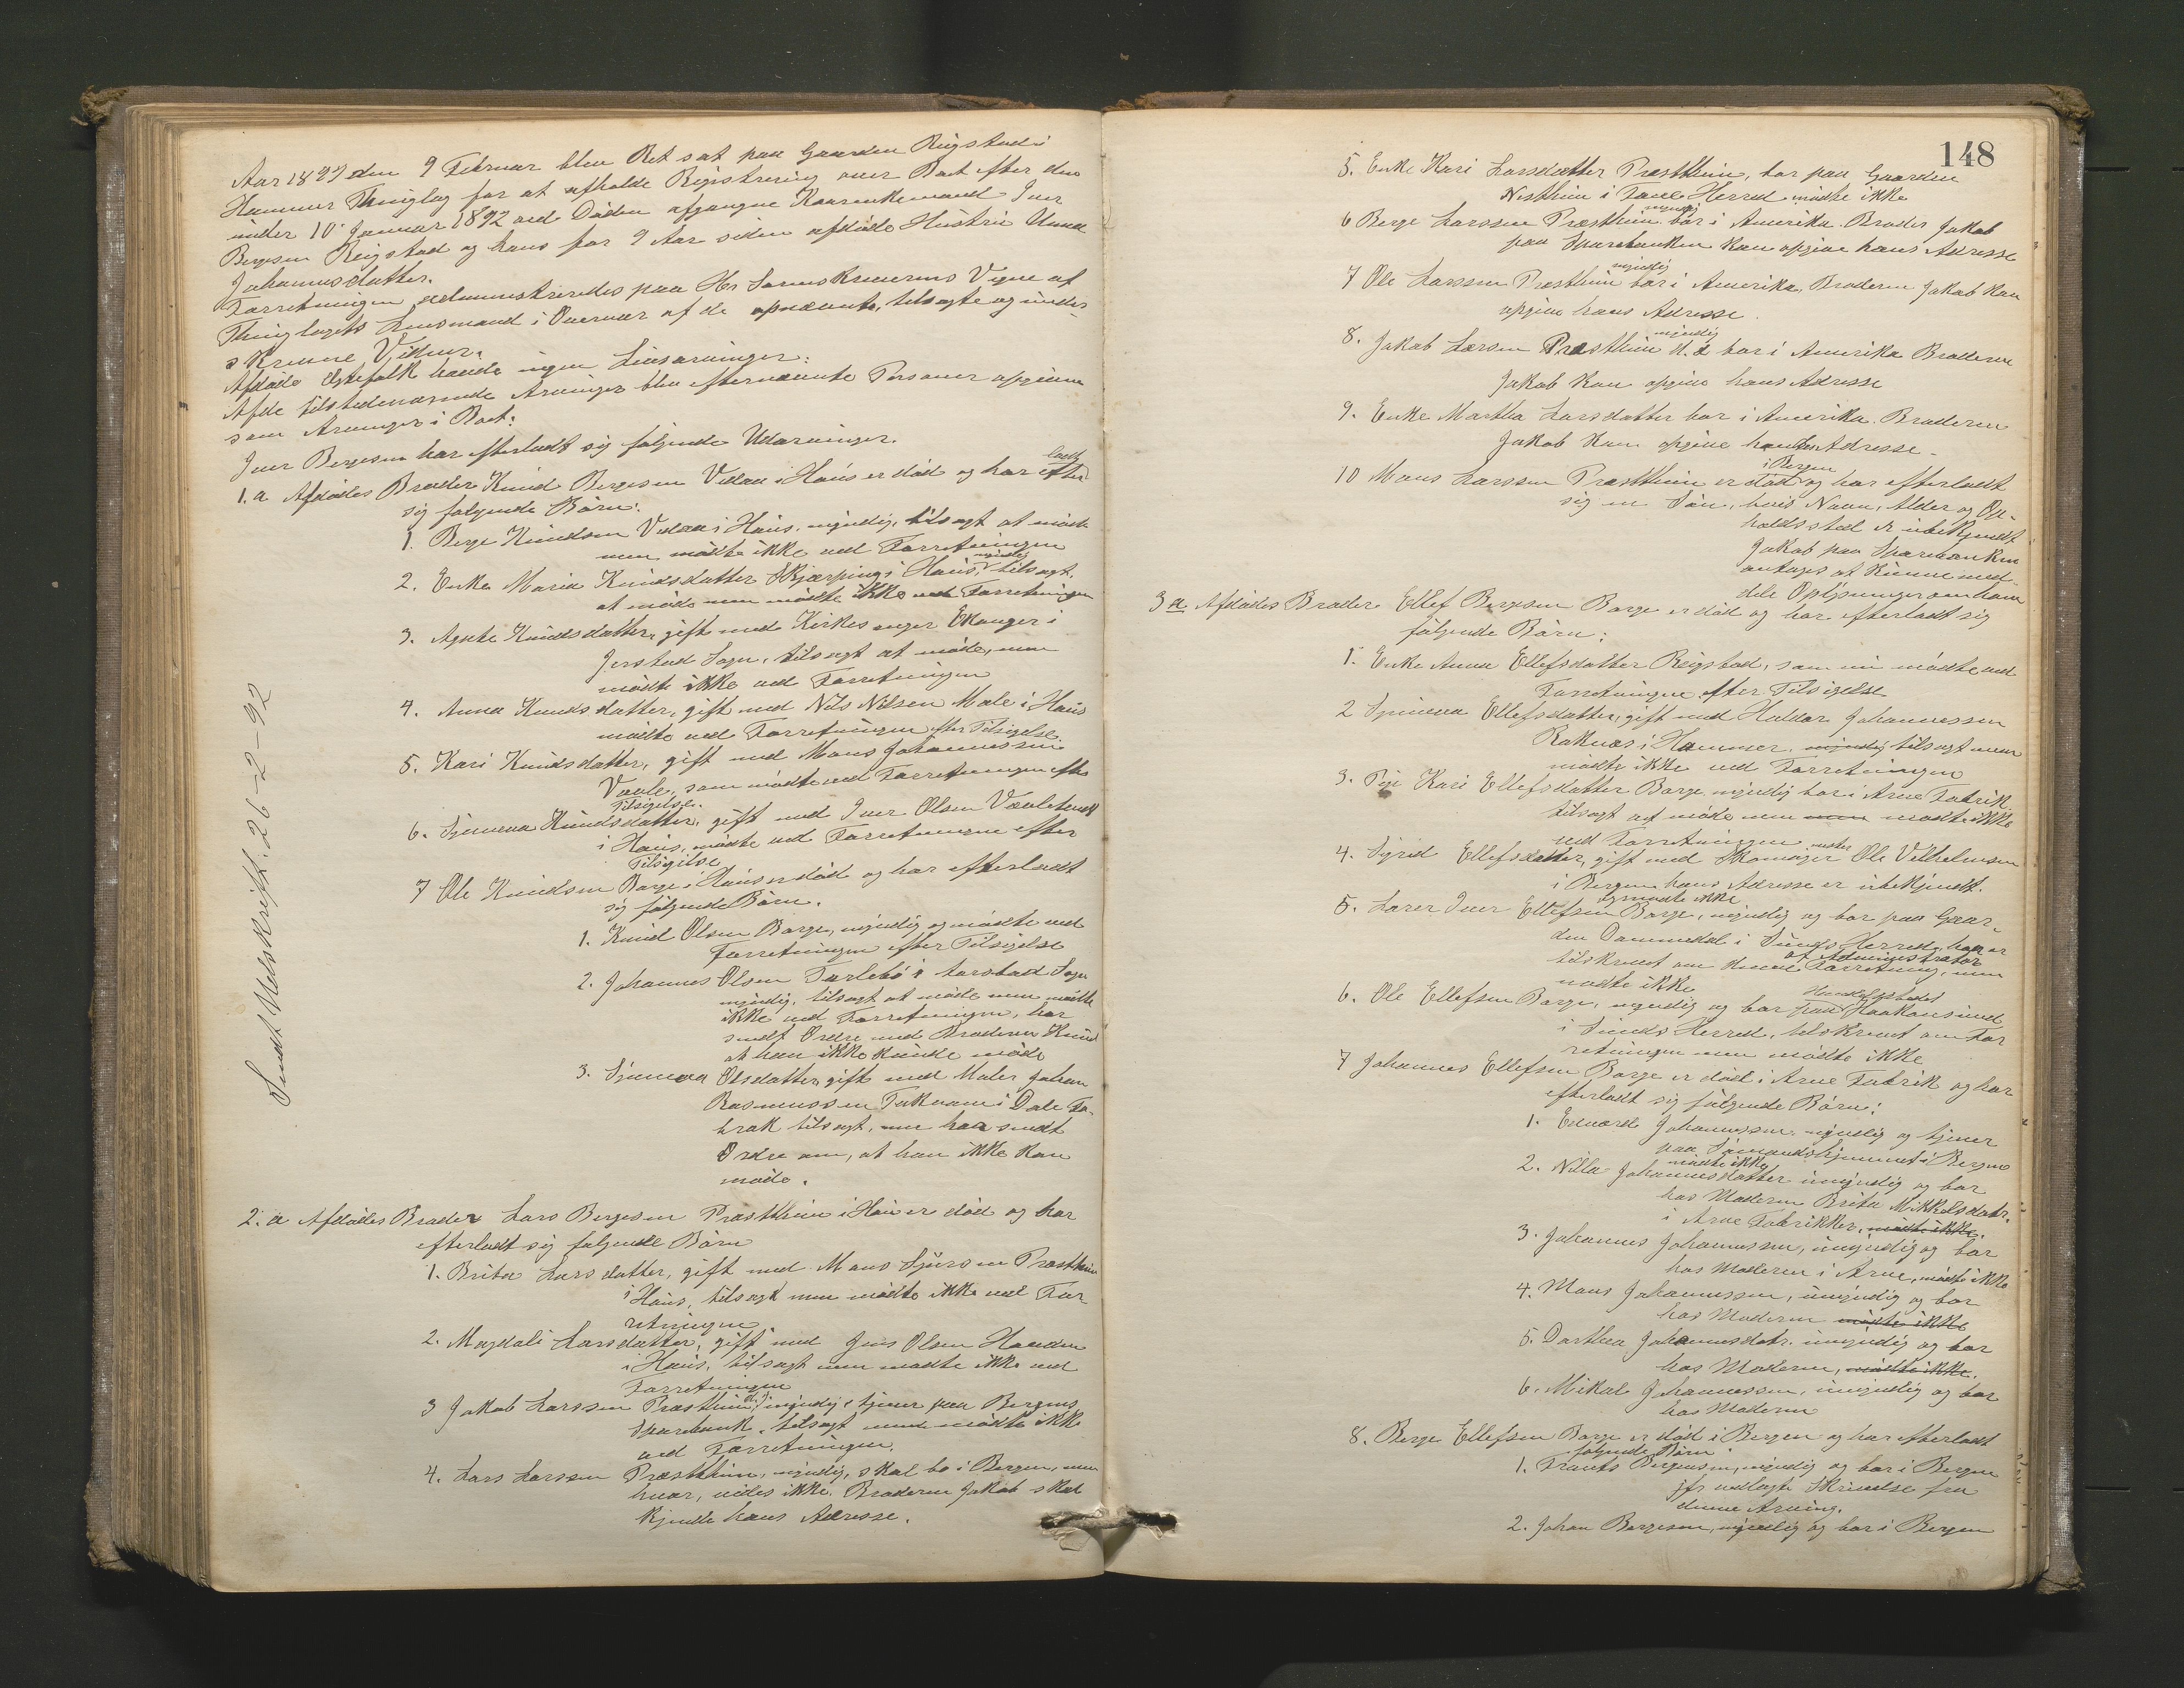 Aar 1892 den 9 Februar blev Ret sat paa Gaarden Reigstad i
Hammer Thinglag for at afholde Registrering over Boet efter den
under 10 Januar 1892 ved Døden afgangne Kaarenkemand Iver
Bergesen Reigstad og hans for 9 Aar siden afdøde Hustru Anna
Johannesdatter.
Forretningen administreredes paa Hr Sorenskriverens Vegne af
Thinglagets Lensmand i Overvær af de opnævnte, tilsagte og under-
skrevne Vidner.
Afdøde Egtefolk havde ingen Livsarvinger.
Af de tilstedeværende Arvinger blev efternævnte Personer opgivne
som Arvinger i Boet:
Iver Bergesen har efterladt sig følgende Udarvinger.
1.a Afdødes Broder Knud Bergesen Vedaa i Haus er død og har efter
ladt
sig følgende Børn:
1. Berge Knudsen Vedaa i Haus, myndig, tilsagt at møde
men mødte ikke ved Forretningen
2. Enke Maria Knudsdatter Skjærping i Haus, myndig tilsagt,
at møde men mødte ikke ved Forretningen
3. Agathe Knudsdatter, gift med Kirkesanger Ekanger i
Jerstad Sogn, tilsagt at møde, men
mødte ikke ved Forretningen
4. Anna Knudsdatter, gift med Nils Nilsen Male i Haus
mødte ved Forretningen efter Tilsigelse.
5. Kari Knudsdatter, gift med Mons Johannessen
Vevle, som mødte ved Forretningen efter
Tilsigelse.
6. Synneva Knudsdatter, gift med Iver Olsen Vevletveit
i Haus, mødte ved Forretningen efter
Tilsigelse
7 Ole Knudsen Borge i Haus er død og har efterladt
sig følgende Børn.
1. Knud Olsen Borge, myndig og mødte ved
Forretningen efter Tilsigelse
2. Johannes Olsen Tarlebø i Sogn
myndig, tilsagt at møde men mødte
ikke ved Forretningen, har
sendt Ordre med Broderen Knud
at han ikke kunde møde
3. Synneva Olsdatter gift med Maler Johan
Rasmussen Tuknam i Dale Fa-
brik tilsagt, men har sendt
Ordre om, at han ikke kan
møde.
2. a Afdødes Broder Lars Bergesen Præstthun i Haus er død og har
efterladt sig følgende Børn
1. Brita Larsdatter, gift med Mons Sjursen Præstthun
i Haus, tilsagt men mødte ikke ved For-
retningen
2. Magdali Larsdatter, gift med Jens Olsen Haaden
i Haus, tilsagt men mødte ikke ved
Forretningen
3 Jakob Larssen Præstthun, myndig, tjener paa Bergens
Sparebank, tilsagt men mødte ikke
ved Forretningen.
4. Lars Larssen Præstthun, myndig, skal bo i Bergen, men
hvor, vides ikke. Broderen Jakob skal
kjende hans Adresse.
Sendt Udskrift 26-2-92
148
5. Enke Kari Larsdatter Præstthun, bor paa Gaarden
Nesthun i Fane Herred mødte ikke
6 Berge Larssen Præstthun myndig bor i Amerika. Broder Jakob
paa Sparebanken kan opgive hans Adresse
7 Ole Larssen Præstthun myndig bor i Amerika, Broderen Jakob kan
opgive hans Adresse.
8. Jakob Larsen Præstthun d. æ myndig bor i Amerika Broderen
Jakob kan opgive hans Adresse
9. Enke Martha Larsdatter bor i Amerika. Broderen
Jakob kan opgive hendes Adresse.
10 Mons Larssen Præstthun er død i Bergen og har efterladt
sig en Søn, hvis Navn, Alder og Op-
holdssted er ubekjendt
Jakob paa Sparebanken
antages at kunne med-
dele Oplysninger om ham
3 a. Afdødes Broder Ellef Bergesen Borge er død og har efterladt sig
følgende Børn:
1. Enke Anna Ellefsdatter Reigstad, som nu mødte ved
Forretningen efter Tilsigelse
2 Synneva Ellefsdatter, gift med Haldor Johannessen
Raknes i Hammer, myndig tilsagt men
mødte ikke ved Forretningen
3. Pige Kari Ellefsdatter Borge, myndig bor i Arne Fabrik,
tilsagt at møde men men mødte ikke
ved Forretningen
4. Sigrid Ellefsdatter, gift med Skomagermester Ole Vilhelmsen
i Bergen hans Adresse er ubekjendt.
og mødte ikke
5. Lærer Iver Ellefsen Borge, myndig og bor paa Gaar-
den Dommedal i Sunds Herred, han er
tilskrevet om denne Forretning, men
af Administrator
mødte ikke
6. Ole Ellefsen Borge, myndig og bor paa Handelsstedet Haakonsund
i Sunds Herred, tilskrevet om For
retningen men mødte ikke
7 Johannes Ellefsen Borge er død i Arne Fabrik og har
efterladt sig følgende Børn:
1. Edvard Johannessen myndig og tjener
paa Sømandshjemmet i Bergen
mødte ikke
2. Nilla Johannesdatter umyndig og bor
hos Moderen Brita Mikkelsdatr.
i Arne Fabrikker, mødte ikke.
3. Johannes Johannessen, umyndig og bor
hos Moderen i Arne, mødte ikke
4. Mons Johannessen, umyndig og bor
hos Moderen mødte ikke
5. Dorthea Johannesdatr. umyndig og bor
hos Moderen, mødte ikke.
6. Mikal Johannessen, umyndig og bor
hos Moderen
8. Berge Ellefsen Borge er død i Bergen og har efterladt
følgende Børn:
1. Frants Bergesen, myndig og bor i Bergen
jfr vedlagt Skrivelse fra
denne Arving.
2. Johan Bergesen, myndig og bor i Bergen